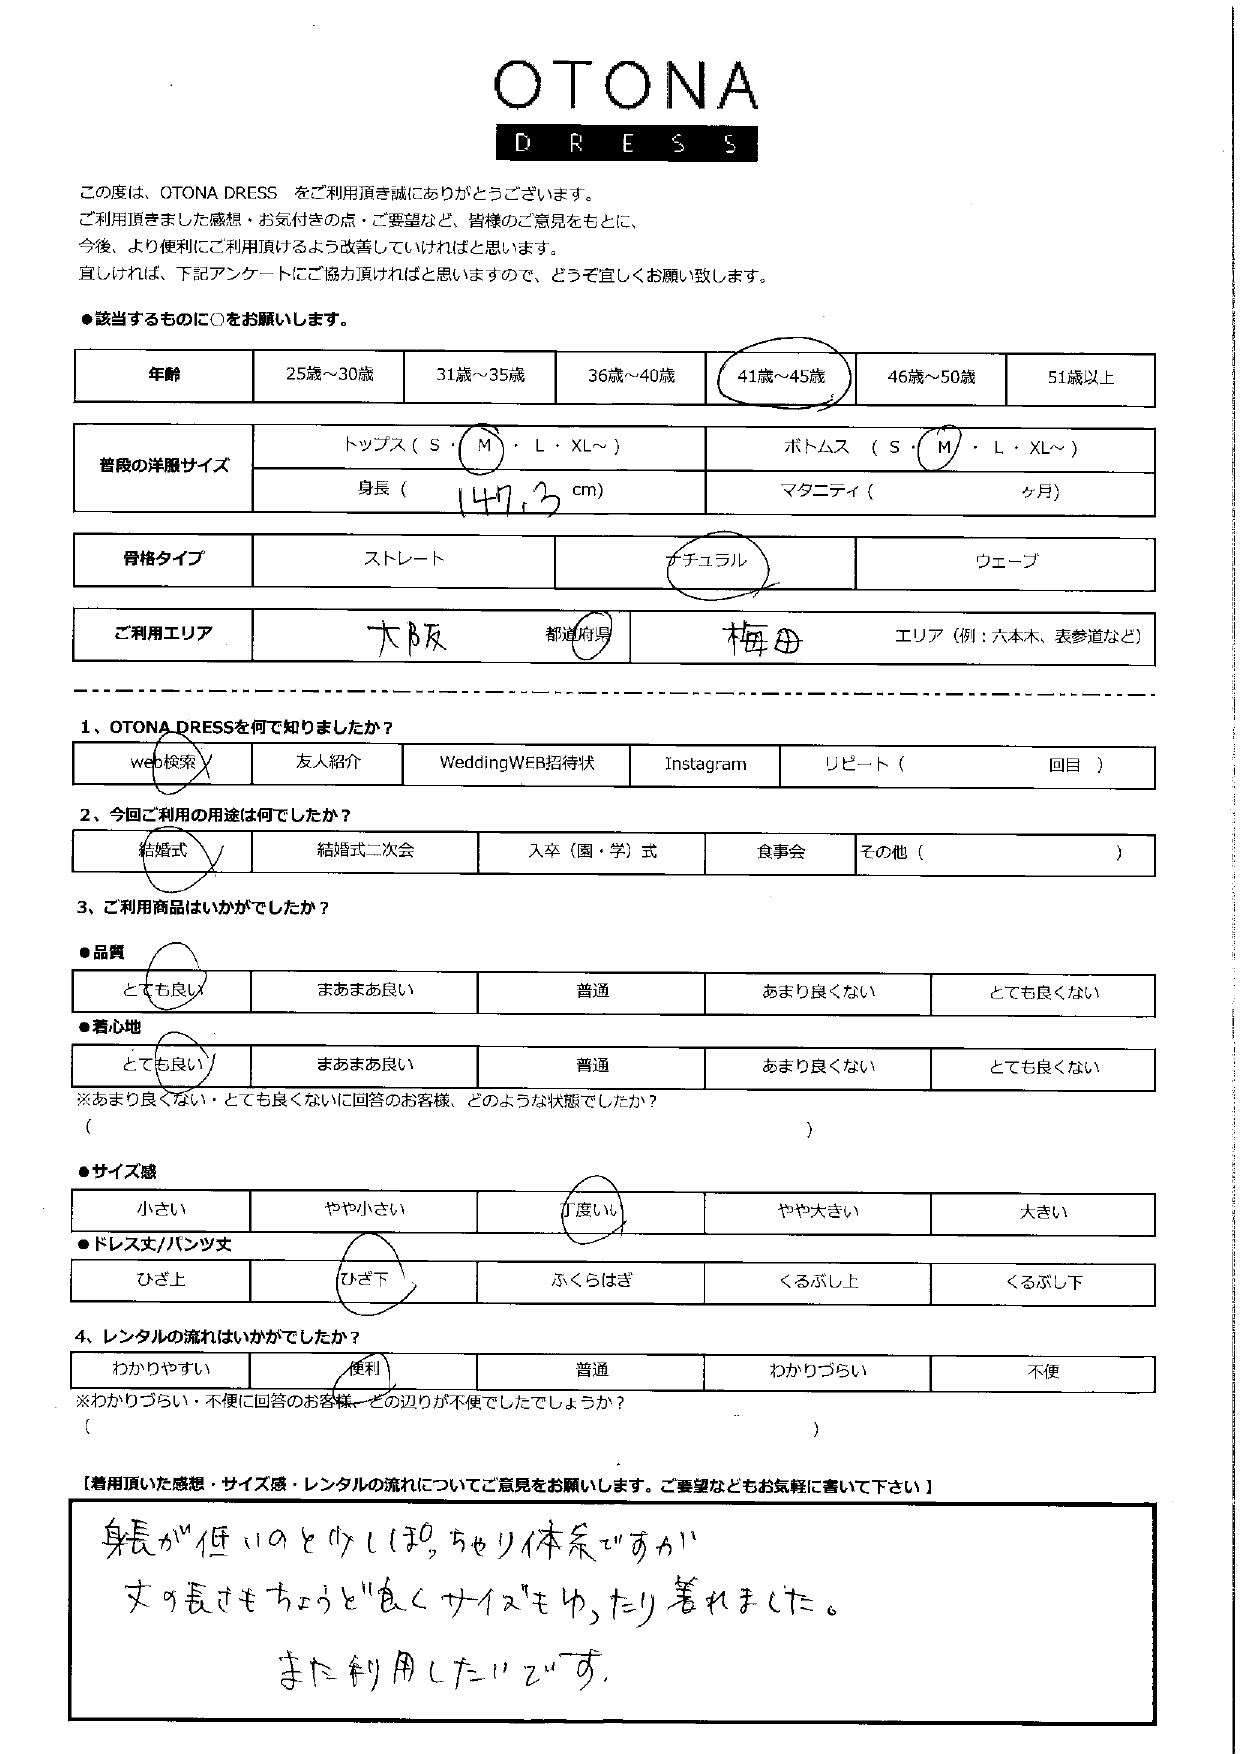 OTONA
DRESS
この度は、OTONA DRESS　をご利用頂き誠にありがとうございます。
ご利用頂きました感想・お気付きの点・ご要望など、皆様のご意見をもとに、
今後、より便利にご利用頂けるよう改善していければと思います。
宜しければ、下記アンケートにご協力頂ければと思いますので、どうぞ宜しくお願い致します。
●該当するものに○をお願いします。
年齢 25歳～30歳 31歳～35歳 36歳～40歳 41歳～45歳 46歳～50歳 51歳以上
普段の洋服サイズ トップス ( S ・ M ・ L ・ XL～ ) ボトムス ( S ・ M ・ L ・ XL～ )
身長 ( 147.3 cm) マタニティ ( ヶ月)
骨格タイプ ストレート ナチュラル ウェーブ
ご利用エリア 大阪 都道府県 梅田 エリア（例：六本木、表参道など）
1、OTONA DRESSを何で知りましたか？
web検索 友人紹介 WeddingWEB招待状 Instagram リピート ( 回目 )
2、今回ご利用の用途は何でしたか？
結婚式 結婚式二次会 入卒（園・学）式 食事会 その他 ( )
3、ご利用商品はいかがでしたか？
●品質
とても良い まあまあ良い 普通 あまり良くない とても良くない
●着心地
とても良い まあまあ良い 普通 あまり良くない とても良くない
※あまり良くない・とても良くないに回答のお客様、どのような状態でしたか？
( )
●サイズ感
小さい やや小さい 丁度いい やや大きい 大きい
●ドレス丈/パンツ丈
ひざ上 ひざ下 ふくらはぎ くるぶし上 くるぶし下
4、レンタルの流れはいかがでしたか？
わかりやすい 便利 普通 わかりづらい 不便
※わかりづらい・不便に回答のお客様、どの辺りが不便でしたでしょうか？
( )
【着用頂いた感想・サイズ感・レンタルの流れについてご意見をお願いします。ご要望などもお気軽に書いて下さい 】
身長が低いのと少しぽっちゃり体系ですが
丈の長さもちょうど良くサイズもゆったり着れました。
また利用したいです.